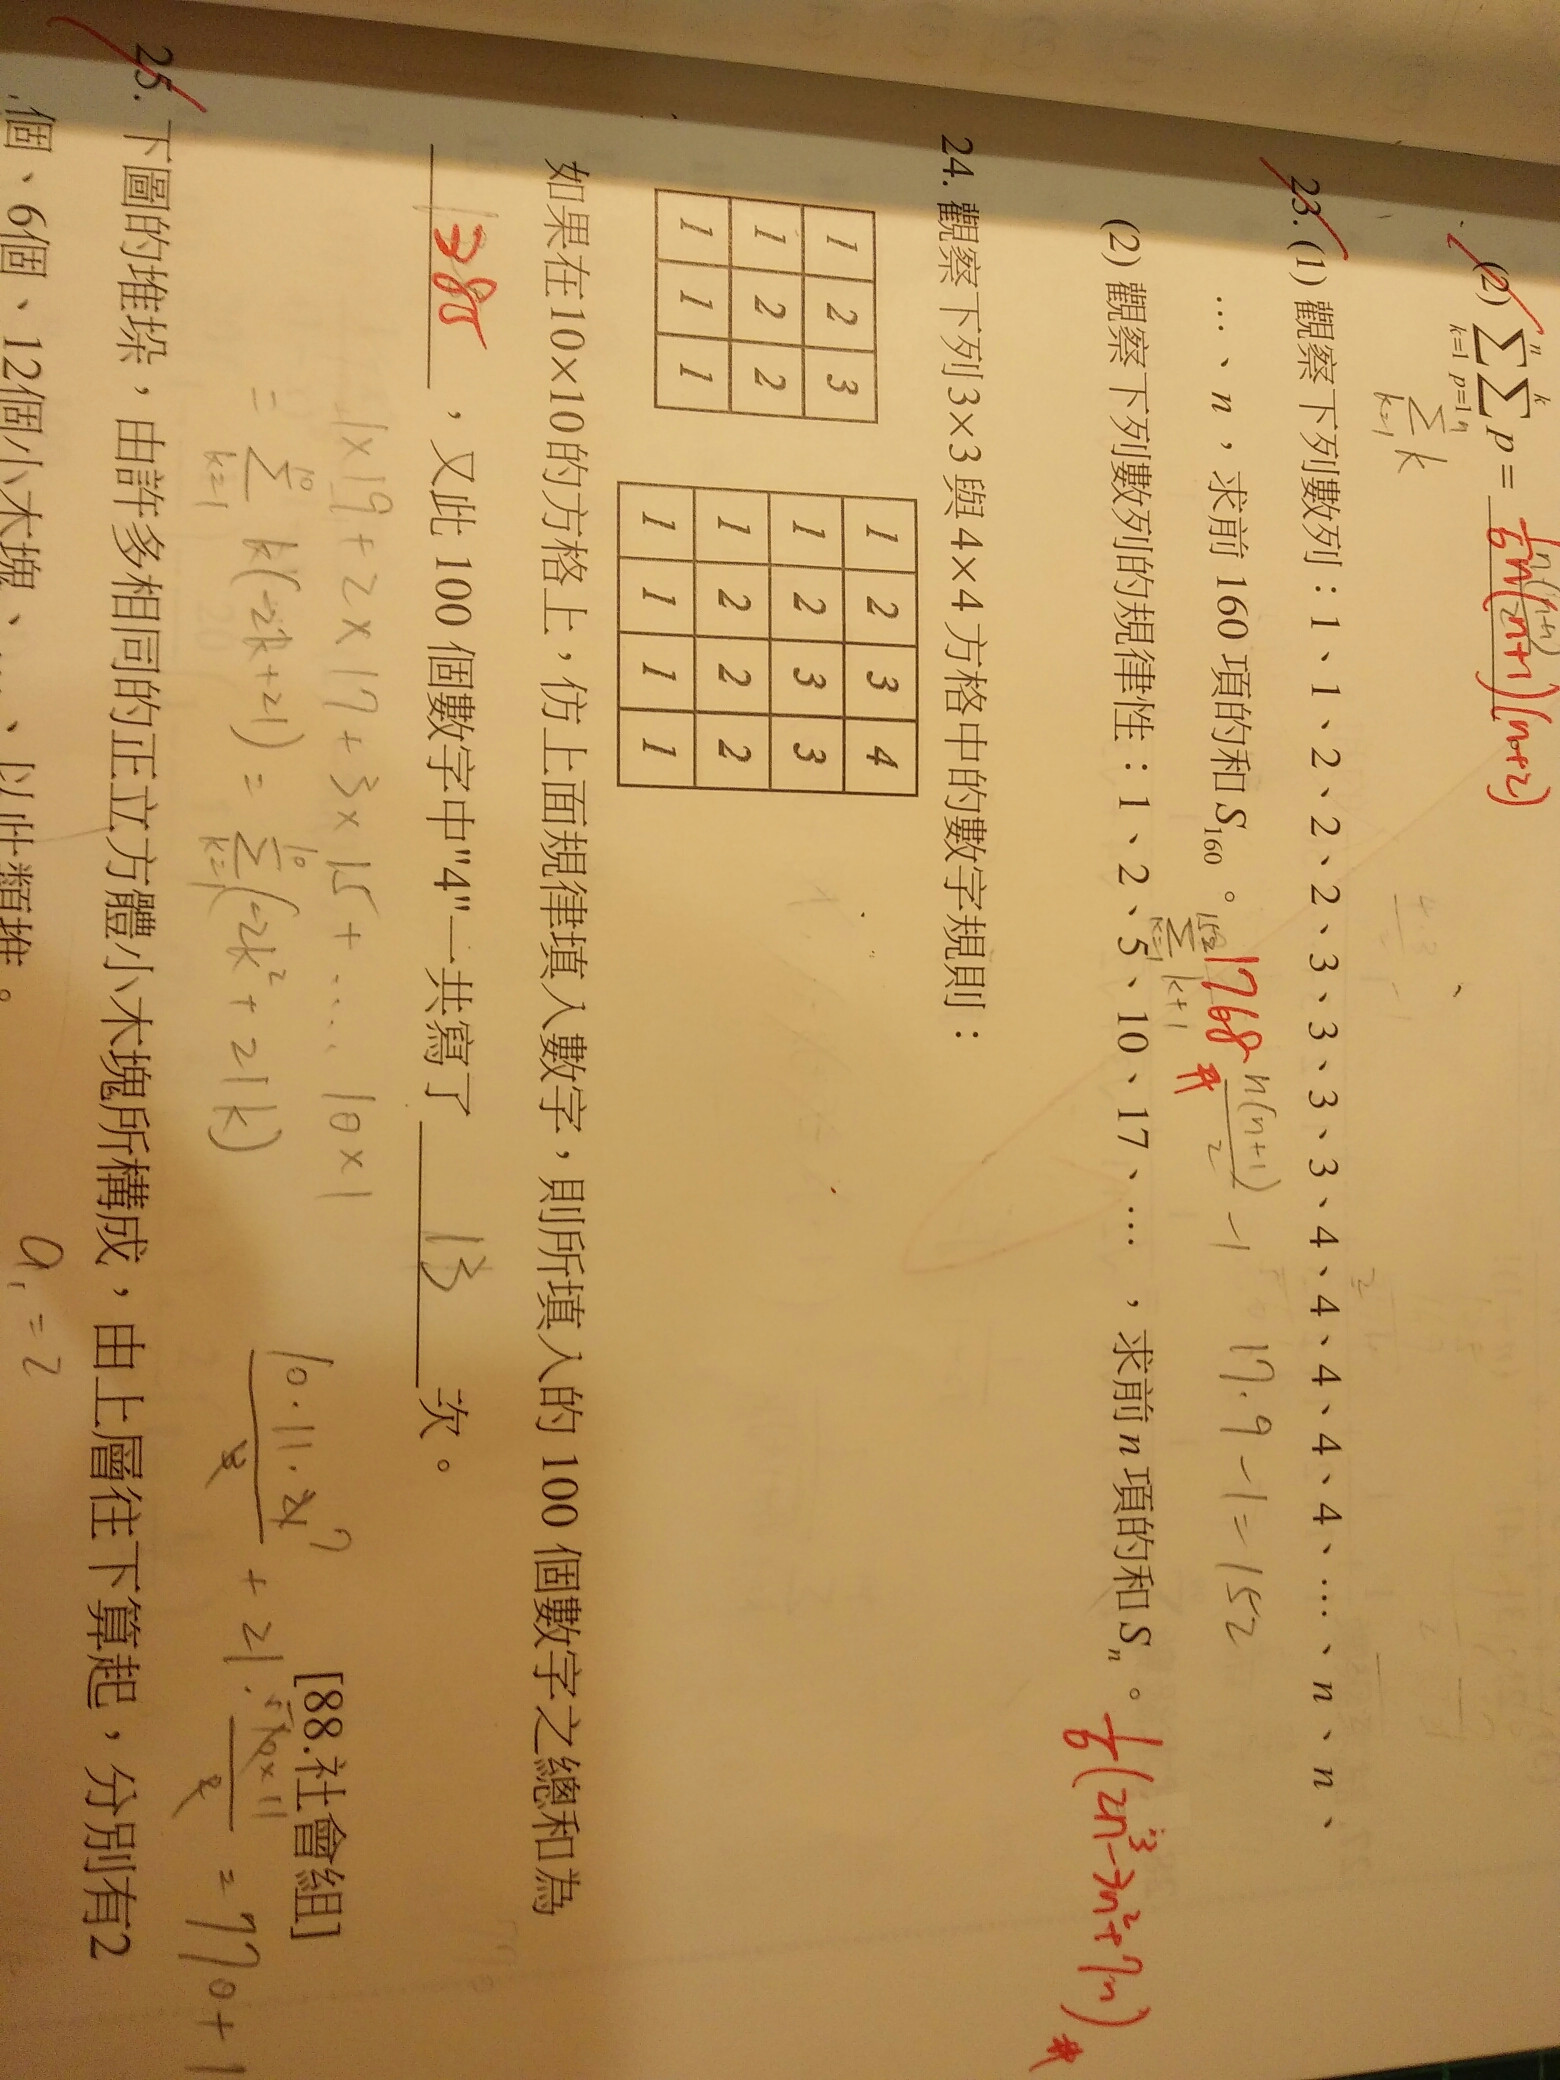 (2) \sum_{k=1}^{n} \sum_{p=1}^{k} p = \frac{1}{6}n(n+1)(n+2)
\sum_{k=1}^{n} k
23. (1) 觀察下列數列：1、1、2、2、2、3、3、3、3、4、4、4、4、4、…、n、n、
…、n，求前 160 項的和 S₁₆₀。 1768 \frac{n(n+1)}{2} - 1 17·9-1=152
\sum_{k=1}^{152} k+1
(2) 觀察下列數列的規律性：1、2、5、10、17、…，求前 n 項的和 Sₙ。 \frac{1}{6}(2n³-3n²+7n)
24. 觀察下列3×3 與 4×4 方格中的數字規則：
1 2 3
1 2 2
1 1 1
1 2 3 4
1 2 3 3
1 2 2 2
1 1 1 1
如果在10×10的方格上，仿上面規律填入數字，則所填入的 100 個數字之總和為
385，又此 100 個數字中"4"一共寫了 13 次。
[88.社會組]
1×19+2×17+3×15+… 10×1
= \sum_{k=1}^{10} k(-2k+21) = \sum_{k=1}^{10} (-2k²+21k)
25. 下圖的堆垛，由許多相同的正立方體小木塊所構成，由上層往下算起，分別有2
個、6個、12個小木塊、…、以此類推。
a₁=2